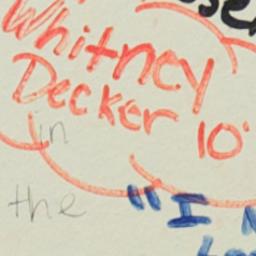 Whitney
Decker 10'
in
the "I